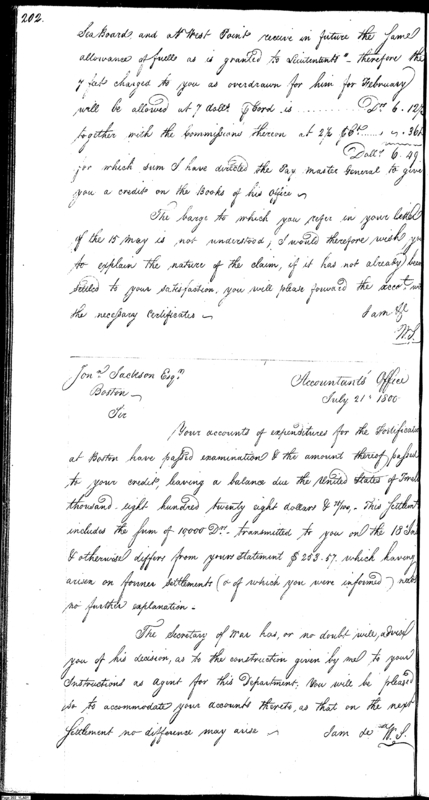 202.
Sea Board and at West Point receive in future the same
allowance of fuelle as is granted to Lieutenants" - therefore the
7 feet charged to you as overdrawn for him for February
will be allowed at 7 dolls. ⅌ Cord is .......... Drs 6. 12½
together with the Commissions thereon at 2½ ⅌ Ct ..... 36½
Dolls. 6. 49
for which sum I have directed the Pay Master General to give
you a credit on the Books of his Office
The barge to which you refer in your letter
of the 15 May is not understood, I would therefore wish you
to explain the nature of the claim, if it has not already been
settled to your satisfaction, you will please forward the accot. with
the necessary certificates
I am &c
W. S.
Jona. Jackson Esqr.
Boston
Accountants' Office
July 21st 1800
Sir
Your accounts of expenditures for the Fortification
at Boston have passed examination & the amount thereof passed
to your credit, leaving a balance due the United States of
thousand eight hundred twenty eight dollars & /100. This Settlement
includes the sum of 10000 Drs. transmitted to you on the 18
& otherwise differs from your statement $ 253.57. which having
arisen on former settlements (& of which you were informed) needs
no further explanation.
The Secretary of War has, or no doubt will, advise
you of his decision, as to the construction given by me to your
Instructions as Agent for this Department; You will be pleased
so to accommodate your accounts thereto, as that on the next
Settlement no difference may arise
I am &c W. S.